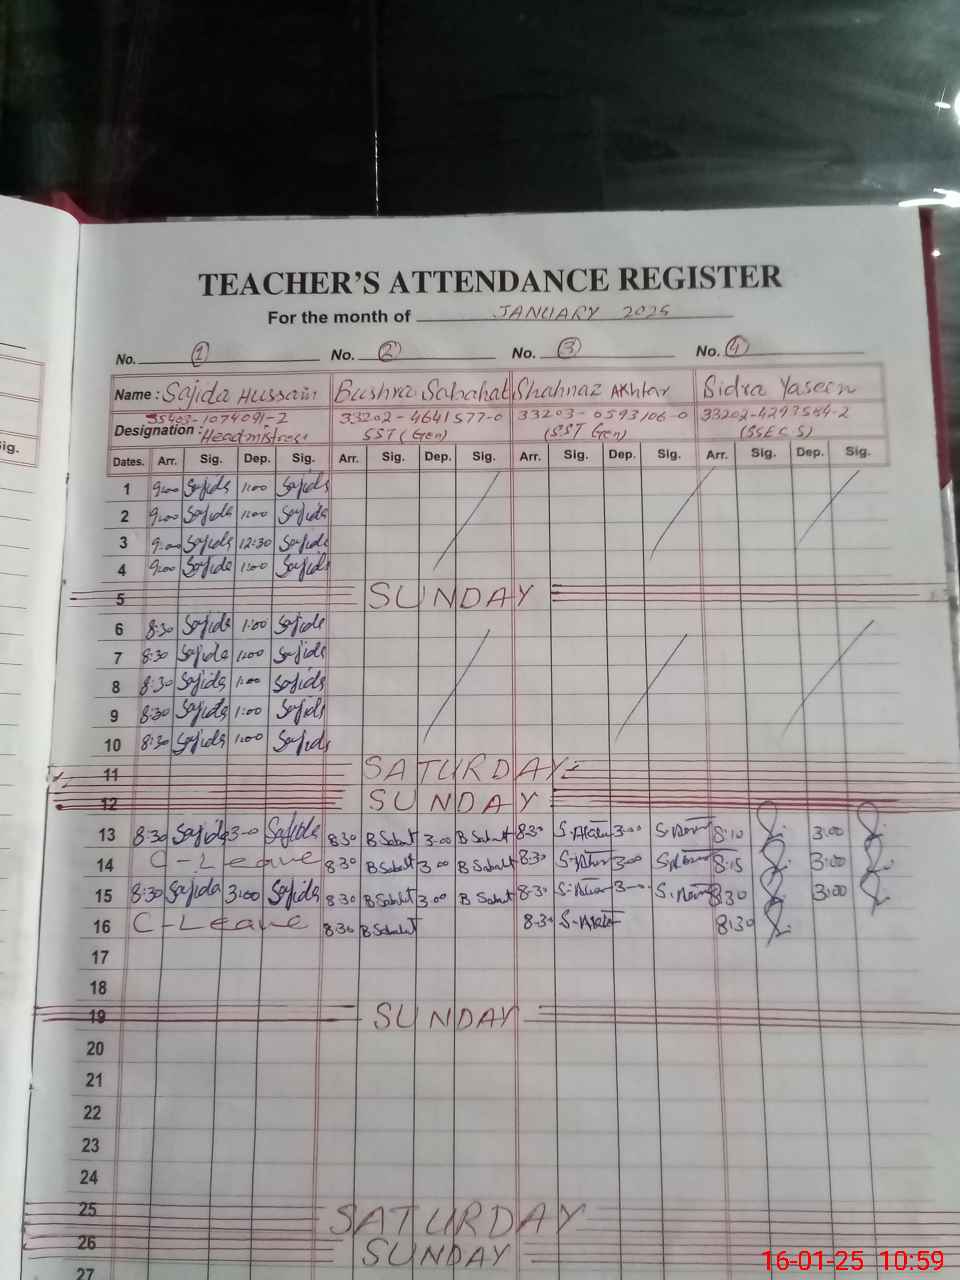 TEACHER'S ATTENDANCE REGISTER
For the month of JANUARY 2025
No. 1 No. 2 No. 3 No. 4
Name : Sajida Hussain Bushra Sabahat Shahnaz Akhtar Sidra Yaseen
35403-1074091-2 33202-4641577-0 33203-0593106-0 33202-4297584-2
Designation : Headmistress SST (Gen) (SST Gen) (SSE C S)
ig.
Dates. Arr. Sig. Dep. Sig. Arr. Sig. Dep. Sig. Arr. Sig. Dep. Sig. Arr. Sig. Dep. Sig.
1 9:00 Sajida 1:00 Sajida
2 9:00 Sajida 1:00 Sajida
3 9:00 Sajida 12:30 Sajida
4 9:00 Sajida 1:00 Sajida
5 SUNDAY
6 8:30 Sajida 1:00 Sajida
7 8:30 Sajida 1:00 Sajida
8 8:30 Sajida 1:00 Sajida
9 8:30 Sajida 1:00 Sajida
10 8:30 Sajida 1:00 Sajida
11 SATURDAY
12 SUNDAY
13 8:30 Sajida 3:00 Sajida 8:30 B Sabaht 3:00 B Sabaht 8:30 3:00 8:10 3:00
14 C-Leave 8:30 B Sabaht 3:00 B Sabaht 8:30 3:00 8:15 3:00
15 8:30 Sajida 3:00 Sajida 8:30 B Sabaht 3:00 B Sabaht 8:30 3:00 8:30 3:00
16 C-Leave 8:30 B Sabaht 8:30 8:30
17
18
19 SUNDAY
20
21
22
23
24
25 SATURDAY
26 SUNDAY
27
16-01-25 10:59